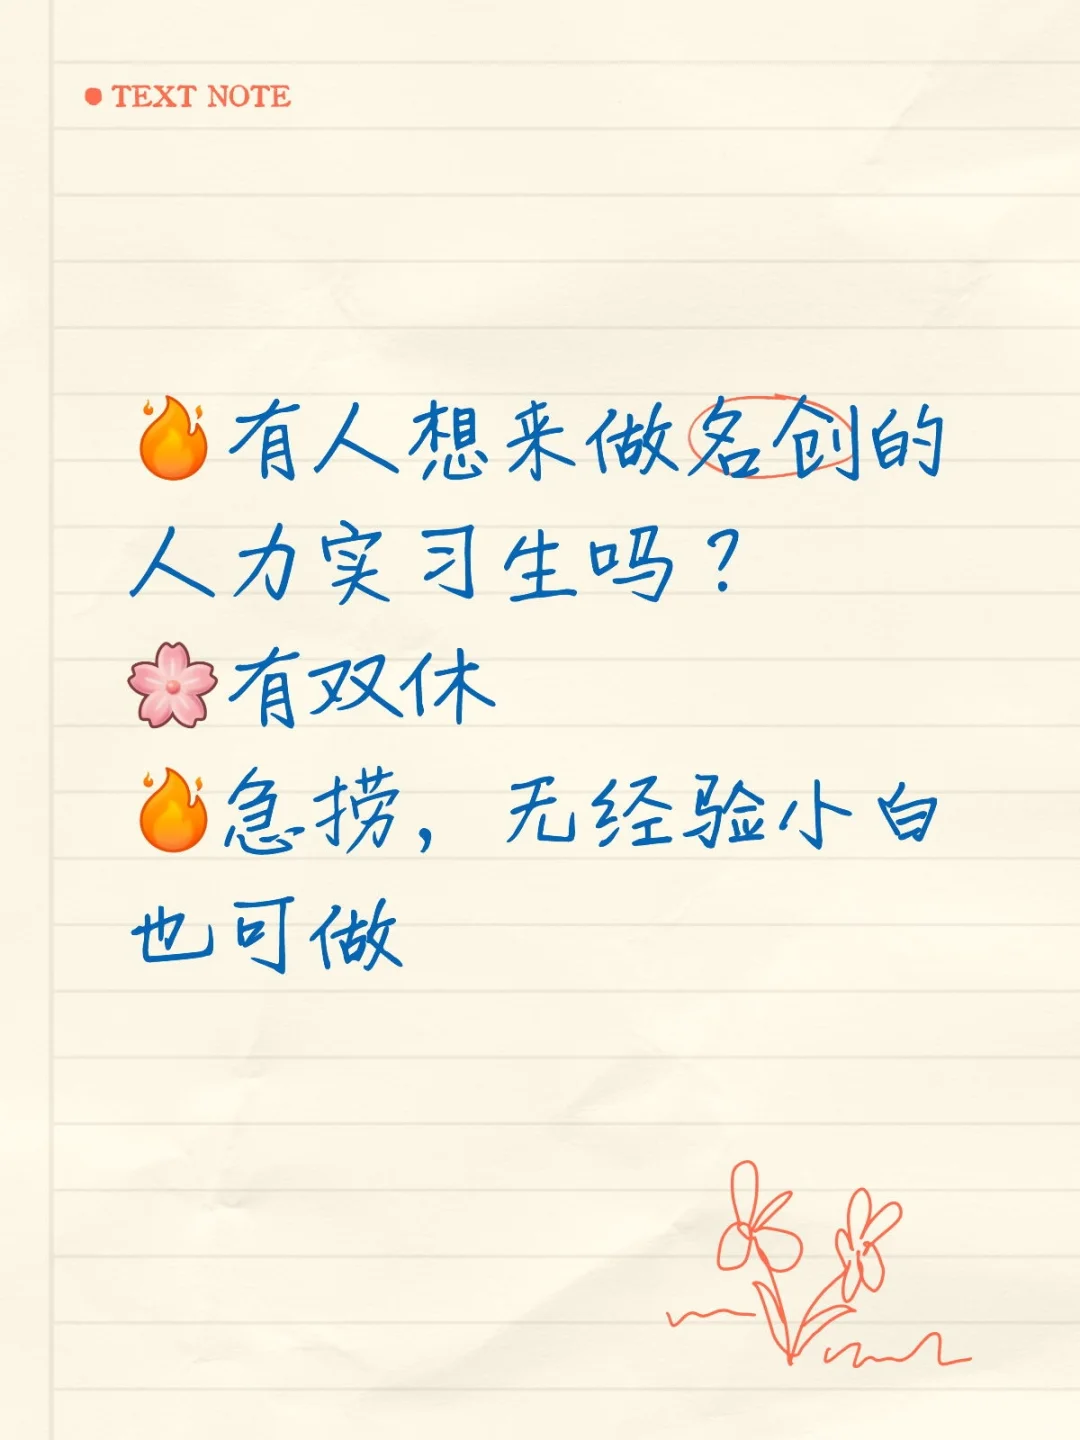 • TEXT NOTE
🔥有人想来做名创的
人力实习生吗？
🌸有双休
🔥急捞，无经验小白
也可做